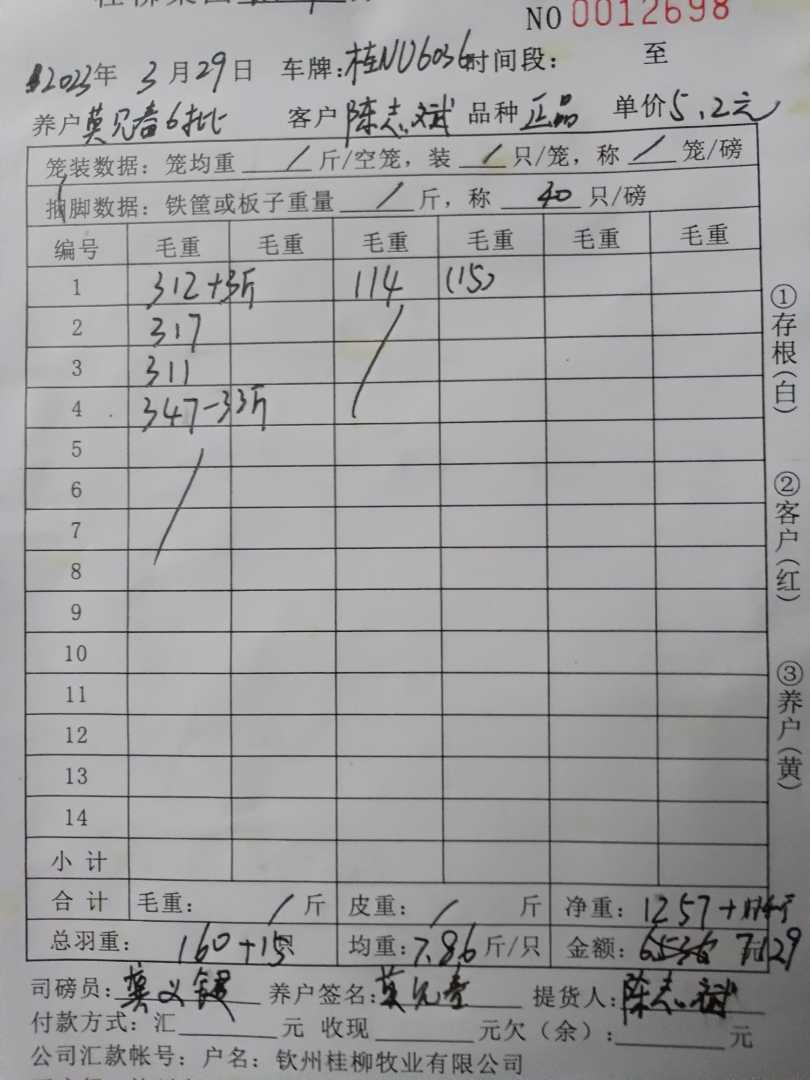 NO 0012698
2023年 3月29日 车牌:桂NU6036时间段: 至
养户莫兄春6批 客户陈志斌 品种正品 单价5.2元
笼装数据:笼均重 / 斤/空笼,装 / 只/笼,称 / 笼/磅
捆脚数据:铁筐或板子重量 / 斤,称 40 只/磅
编号 毛重 毛重 毛重 毛重 毛重 毛重
1 312+3斤 114 (15)
2 317
3 311
4 347-33斤
5
6
7
8
9
10
11
12
13
14
小计
合计 毛重: / 斤 皮重: / 斤 净重:1257+114斤
总羽重: 160+15只 均重:7.86斤/只 金额:6536 7129
司磅员: 养户签名:莫兄春 提货人:陈志斌
付款方式:汇 元 收现 元欠(余): 元
公司汇款帐号:户名:钦州桂柳牧业有限公司
①存根(白)
②客户(红)
③养户(黄)